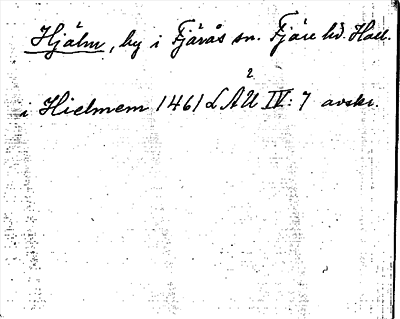 Hjälm, by i Fjärås sn. Fjäre hd. Hall.
i Hielmem 1461 LAU² IV: 7 avskr.